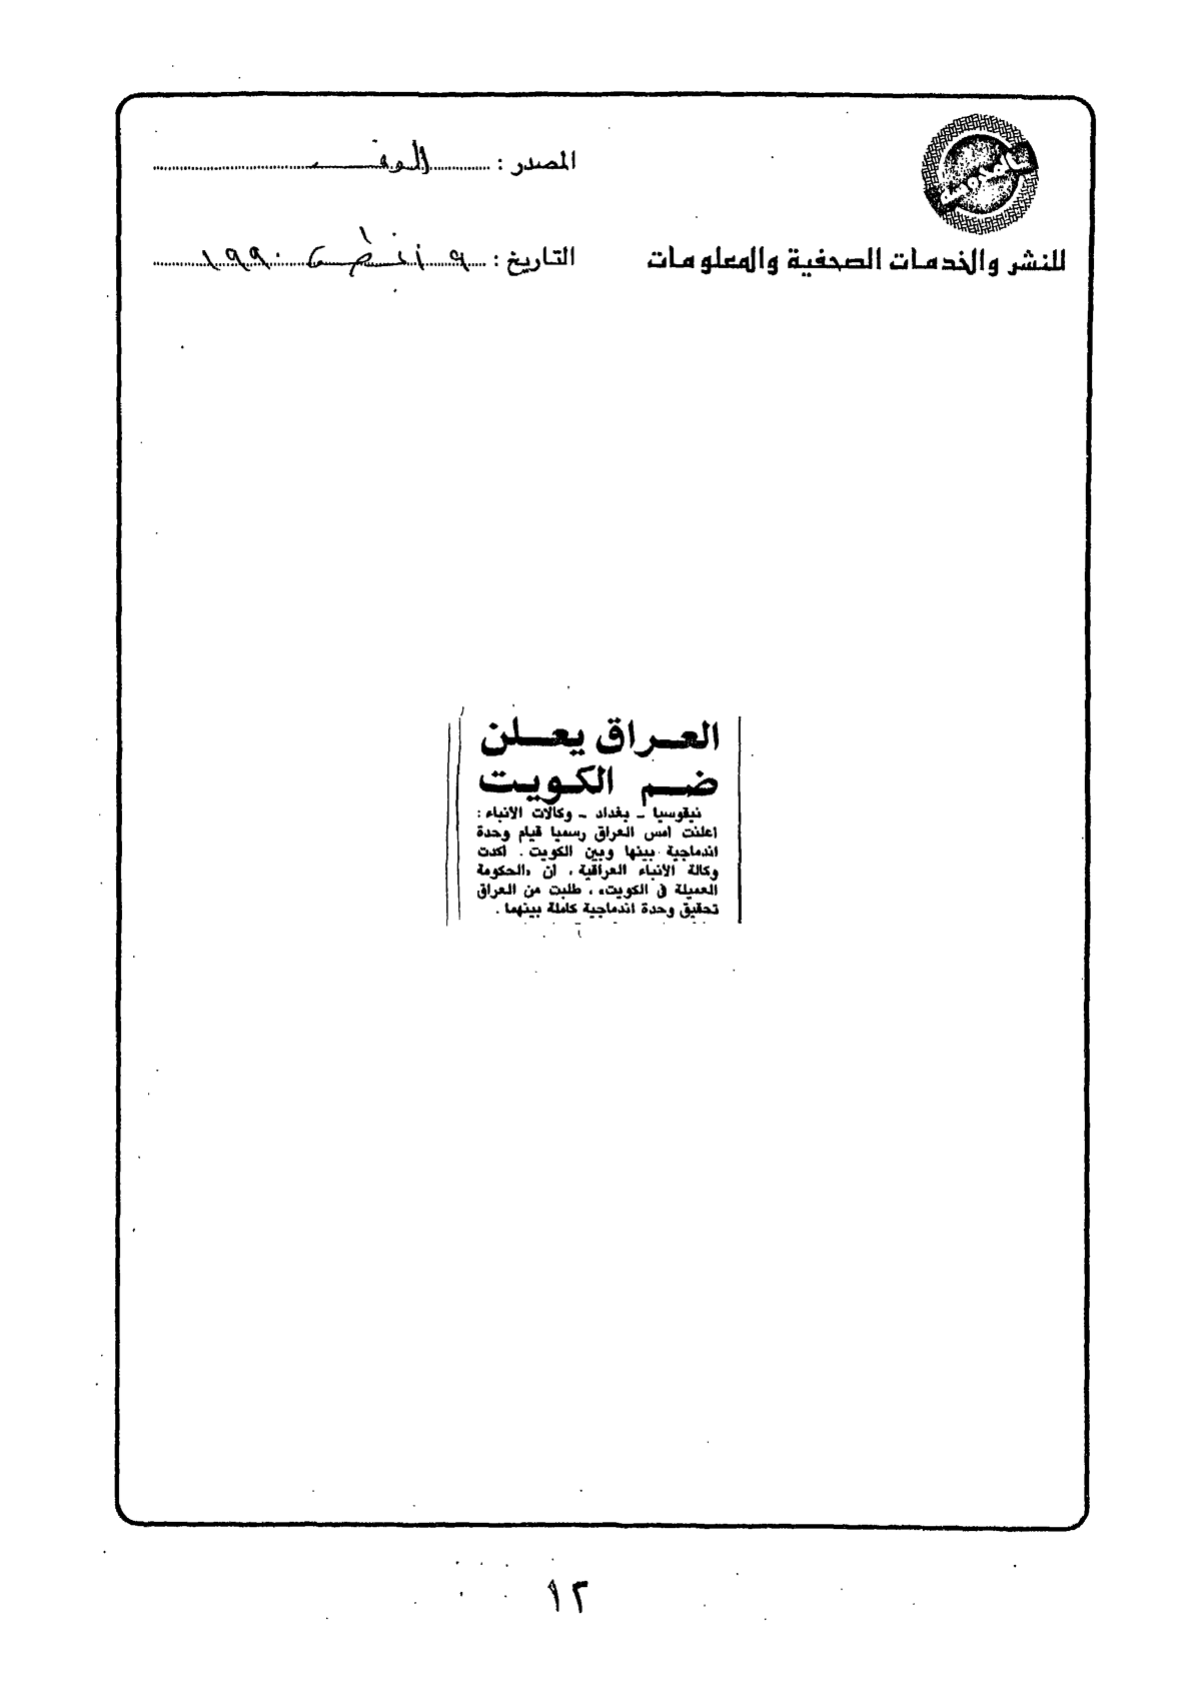 المصدر : الوفد
للنشر والخدمات الصحفية والمعلومات
التاريخ : ٩ أغسطس ١٩٩٠
العراق يعلن
ضم الكويت
نيقوسيا - بغداد - وكالات الانباء :
اعلنت امس العراق رسميا قيام وحدة
اندماجية بينها وبين الكويت . اكدت
وكالة الانباء العراقية ، ان «الحكومة
العميلة في الكويت» ، طلبت من العراق
تحقيق وحدة اندماجية كاملة بينهما .
١٢